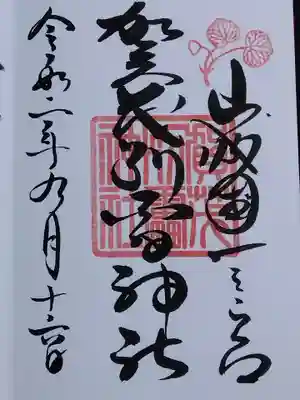 山城国一之宮
賀茂別雷神社
賀茂別雷神社
令和二年九月十